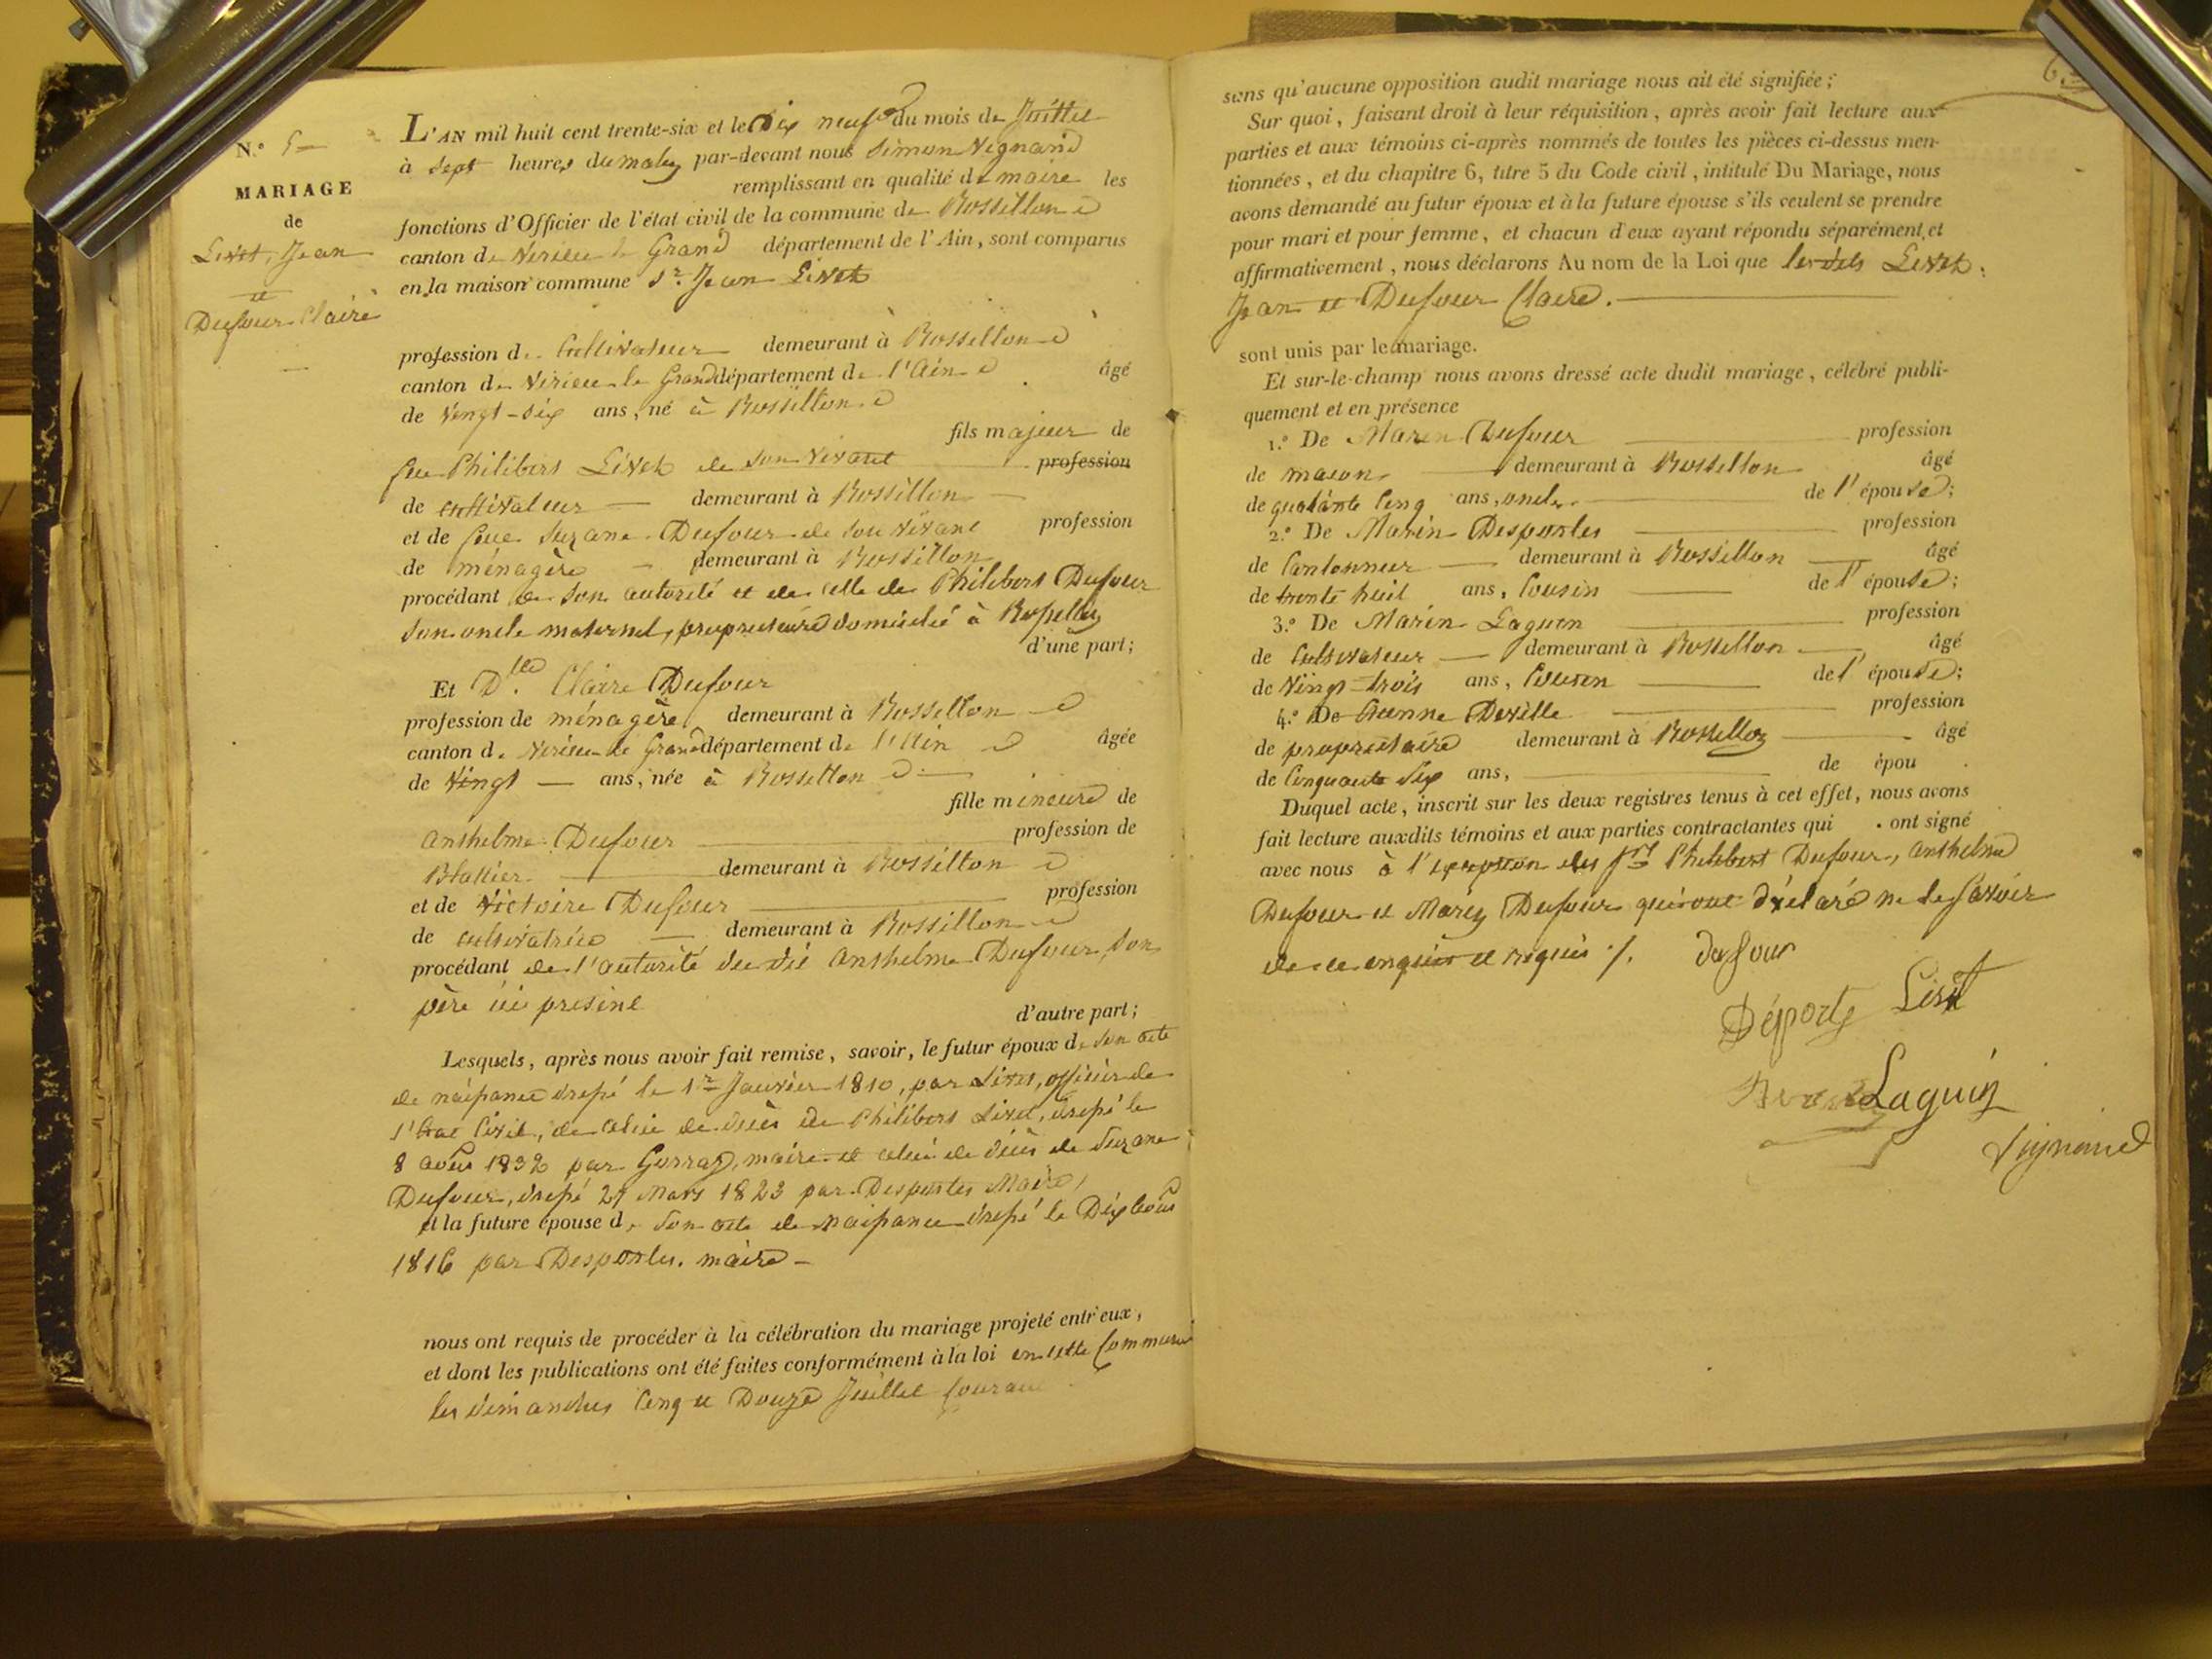 N.° 5
MARIAGE
de
Livet, Jean
et
Dufour Claire
L'AN mil huit cent trente-six et le dix neuf du mois de Juillet
à sept heures du matin par-devant nous Simon Vignand
remplissant en qualité de maire les
fonctions d'Officier de l'état civil de la commune de Rossillon
canton de Virieu le Grand département de l'Ain, sont comparus
en la maison commune Sr. Jean Livet
profession de Cultivateur demeurant à Rossillon
canton de Virieu le Grand département de l'Ain âgé
de vingt-six ans, né à Rossillon
fils majeur de
feu Philibert Livet de son vivant profession
de cultivateur demeurant à Rossillon
et de feue Suzane Dufour de son vivant profession
de ménagère demeurant à Rossillon
procédant de son autorité et de celle de Philibert Dufour
son oncle maternel, propriétaire domicilié à Rossillon
d'une part;
Et Dlle. Claire Dufour
profession de ménagère demeurant à Rossillon
canton de Virieu le Grand département de l'Ain âgée
de vingt ans, née à Rossillon
fille mineure de
Anthelme Dufour profession de
demeurant à Rossillon
et de Victoire Dufour profession
de cultivatrice demeurant à Rossillon
procédant de l'autorité du dit Anthelme Dufour, son
père ici présent
d'autre part;
Lesquels, après nous avoir fait remise, savoir, le futur époux de son acte
de naissance dressé le 1er Janvier 1810, par Livet, officier de
l'Etat Civil, de celui de décès de Philibert Livet, dressé le
8 août 1832 par maire et celui de décès de Suzane
Dufour, dressé Mars 1823 par Desportes Maire,
et la future épouse de son acte de naissance dressé le Dix
1816 par Desportes, maire
nous ont requis de procéder à la célébration du mariage projeté entr'eux,
et dont les publications ont été faites conformément à la loi en cette Commune
les dimanches Cinq et Douze Juillet Courant
sans qu'aucune opposition audit mariage nous ait été signifiée;
Sur quoi, faisant droit à leur réquisition, après avoir fait lecture aux
parties et aux témoins ci-après nommés de toutes les pièces ci-dessus men-
tionnées, et du chapitre 6, titre 5 du Code civil, intitulé Du Mariage, nous
avons demandé au futur époux et à la future épouse s'ils veulent se prendre
pour mari et pour femme, et chacun d'eux ayant répondu séparément et
affirmativement, nous déclarons Au nom de la Loi que lesdits Livet
Jean et Dufour Claire.
sont unis par le mariage.
Et sur-le-champ nous avons dressé acte dudit mariage, célébré publi-
quement et en présence
1.° De Marin Dufour profession
de macon demeurant à Rossillon âgé
de quarante cinq ans, oncle de l'épouse;
2.° De Marin Desportes profession
de Cantonnier demeurant à Rossillon âgé
de trente huit ans, Cousin de l'épouse;
3.° De Marin Laguin profession
de Cultivateur demeurant à Rossillon âgé
de vingt-trois ans, Cousin de l'épouse;
4.° De Deville profession
de propriétaire demeurant à Rossillon âgé
de Cinquante six ans, de épou
Duquel acte, inscrit sur les deux registres tenus à cet effet, nous avons
fait lecture auxdits témoins et aux parties contractantes qui ont signé
avec nous à l'exception des Philibert Dufour, Anthelme
Dufour et Marin Dufour qui ont déclaré ne le savoir
de ce enquis et requis ./. dufour
Déporte Livet
Laguin
Vignand